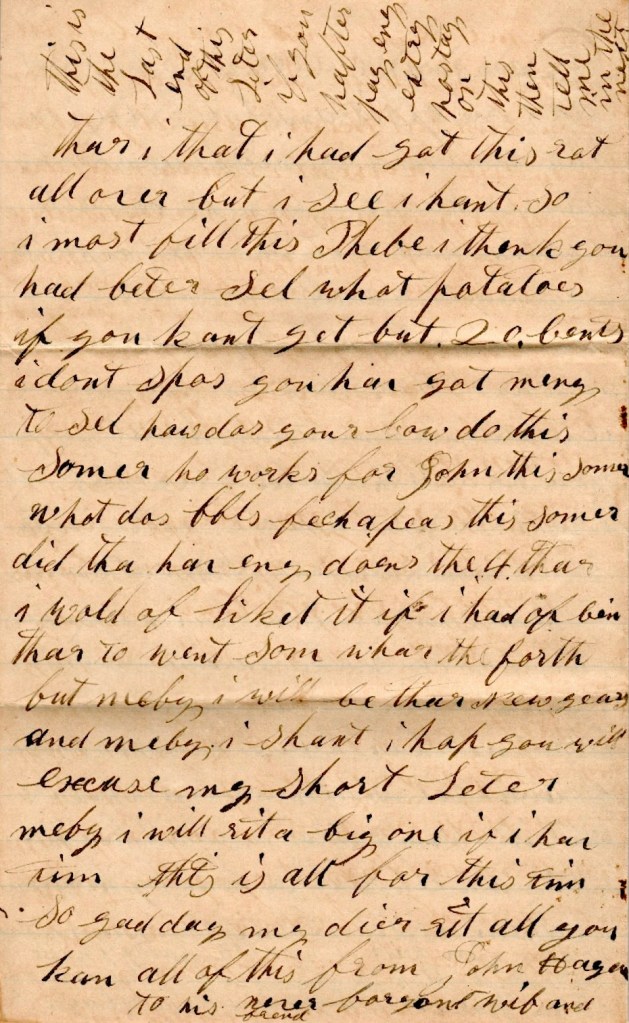 this is the Last end of this Leter if you hafter pay eny extry postag on this then tell me in the next
thar i that i had got this rot
all over but i see i hant. so
i most fill this Phebe i thenk you
had beter sel what potatoes
if you kant get but. 20. cents
i dont spos you har got meny
to sel how dos your cow do this
somer ho works for John this somer
what dos bbls fech apeas this somer
did tha har eny doens the 4. thar
i wold of liket it if i had of bin
thar to went som whar the forth
but meby i will be thar New years
and meby i shant i hop you will
excuse my short Leter
meby i will rit a big one if i har
tim this is all for this tim
so god day my dier rit all you
kan all of this from John Hagen
to his never forgont wif and
frend